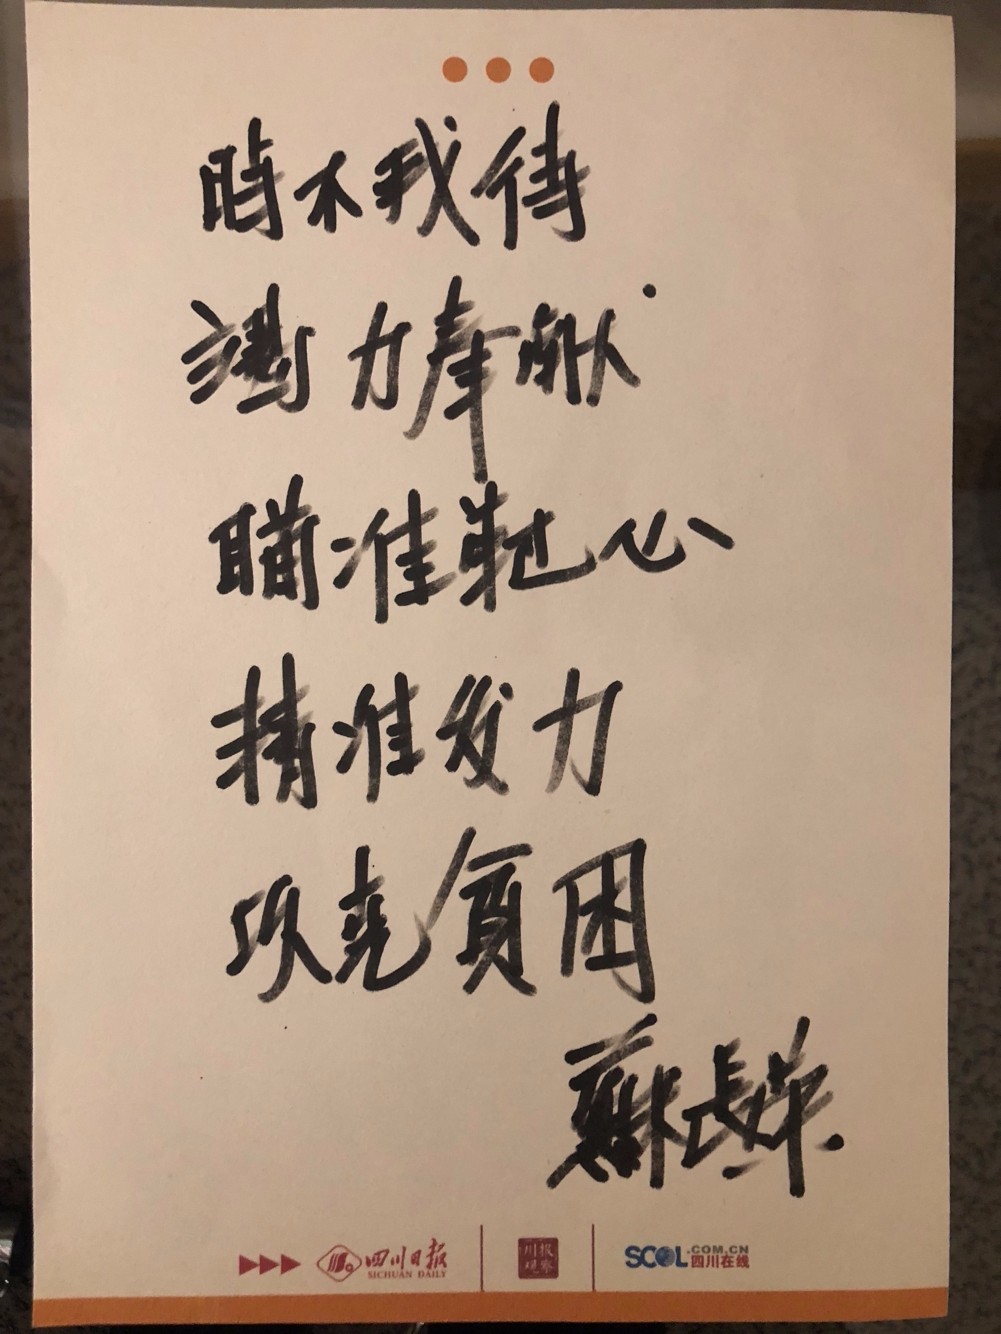 时不我待
竭力奉献
瞄准靶心
精准发力
攻克贫困
蘇長荣
四川日报
SICHUAN DAILY
川报观察
SCOL.COM.CN
四川在线